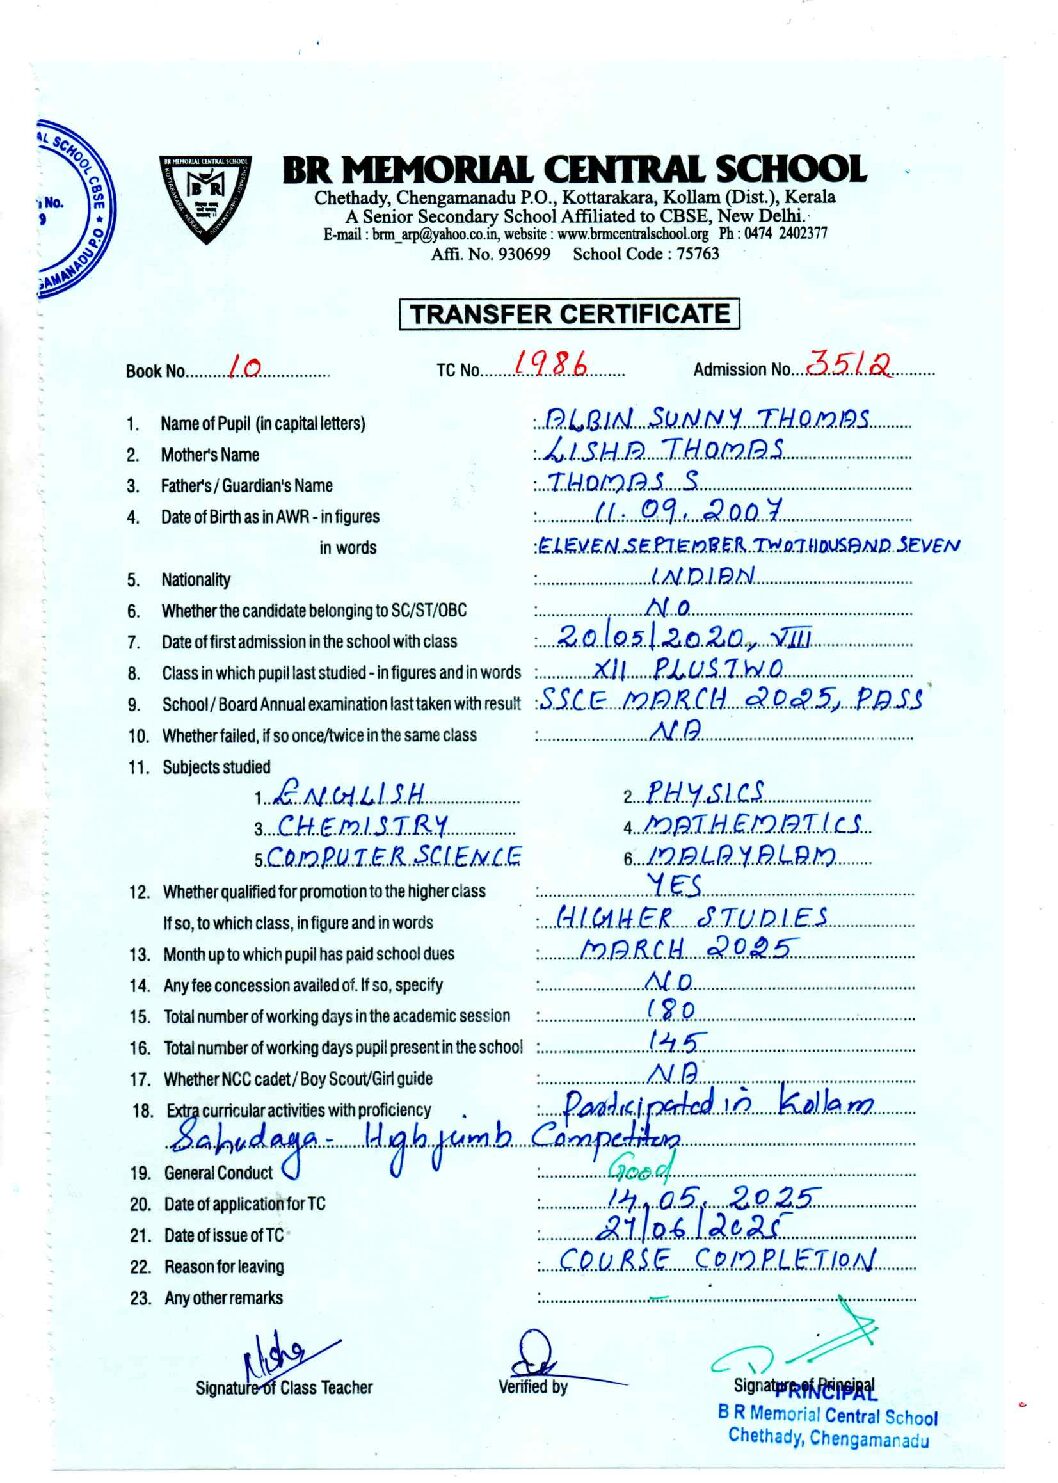 AL SCHOOL CBSE ★
No.
9
GAMANADU P.O
BR MEMORIAL CENTRAL SCHOOL
BR
BR MEMORIAL CENTRAL SCHOOL
Chethady, Chengamanadu P.O., Kottarakara, Kollam (Dist.), Kerala
A Senior Secondary School Affiliated to CBSE, New Delhi.
E-mail : brm_arp@yahoo.co.in, website : www.brmcentralschool.org Ph : 0474 2402377
Affi. No. 930699 School Code : 75763
TRANSFER CERTIFICATE
Book No. 10 TC No. 1986 Admission No. 3512
1. Name of Pupil (in capital letters) : ALBIN SUNNY THOMAS
2. Mother's Name : LISHA THOMAS
3. Father's / Guardian's Name : THOMAS S
4. Date of Birth as in AWR - in figures : 11.09.2007
in words : ELEVEN SEPTEMBER TWO THOUSAND SEVEN
5. Nationality : INDIAN
6. Whether the candidate belonging to SC/ST/OBC : NO
7. Date of first admission in the school with class : 20/05/2020, VIII
8. Class in which pupil last studied - in figures and in words : XII PLUS TWO
9. School / Board Annual examination last taken with result : SSCE MARCH 2025, PASS
10. Whether failed, if so once/twice in the same class : NA
11. Subjects studied
1. ENGLISH 2. PHYSICS
3. CHEMISTRY 4. MATHEMATICS
5. COMPUTER SCIENCE 6. MALAYALAM
12. Whether qualified for promotion to the higher class : YES
If so, to which class, in figure and in words : HIGHER STUDIES
13. Month up to which pupil has paid school dues : MARCH 2025
14. Any fee concession availed of. If so, specify : NO
15. Total number of working days in the academic session : 180
16. Total number of working days pupil present in the school : 145
17. Whether NCC cadet / Boy Scout/Girl guide : NA
18. Extra curricular activities with proficiency : Participated in Kollam
Sahudaya - High jumb Competition
19. General Conduct : Good
20. Date of application for TC : 14.05.2025
21. Date of issue of TC : 27/06/2025
22. Reason for leaving : COURSE COMPLETION
23. Any other remarks : –
Nisha
Signature of Class Teacher Verified by Signature of Principal
PRINCIPAL
B R Memorial Central School
Chethady, Chengamanadu